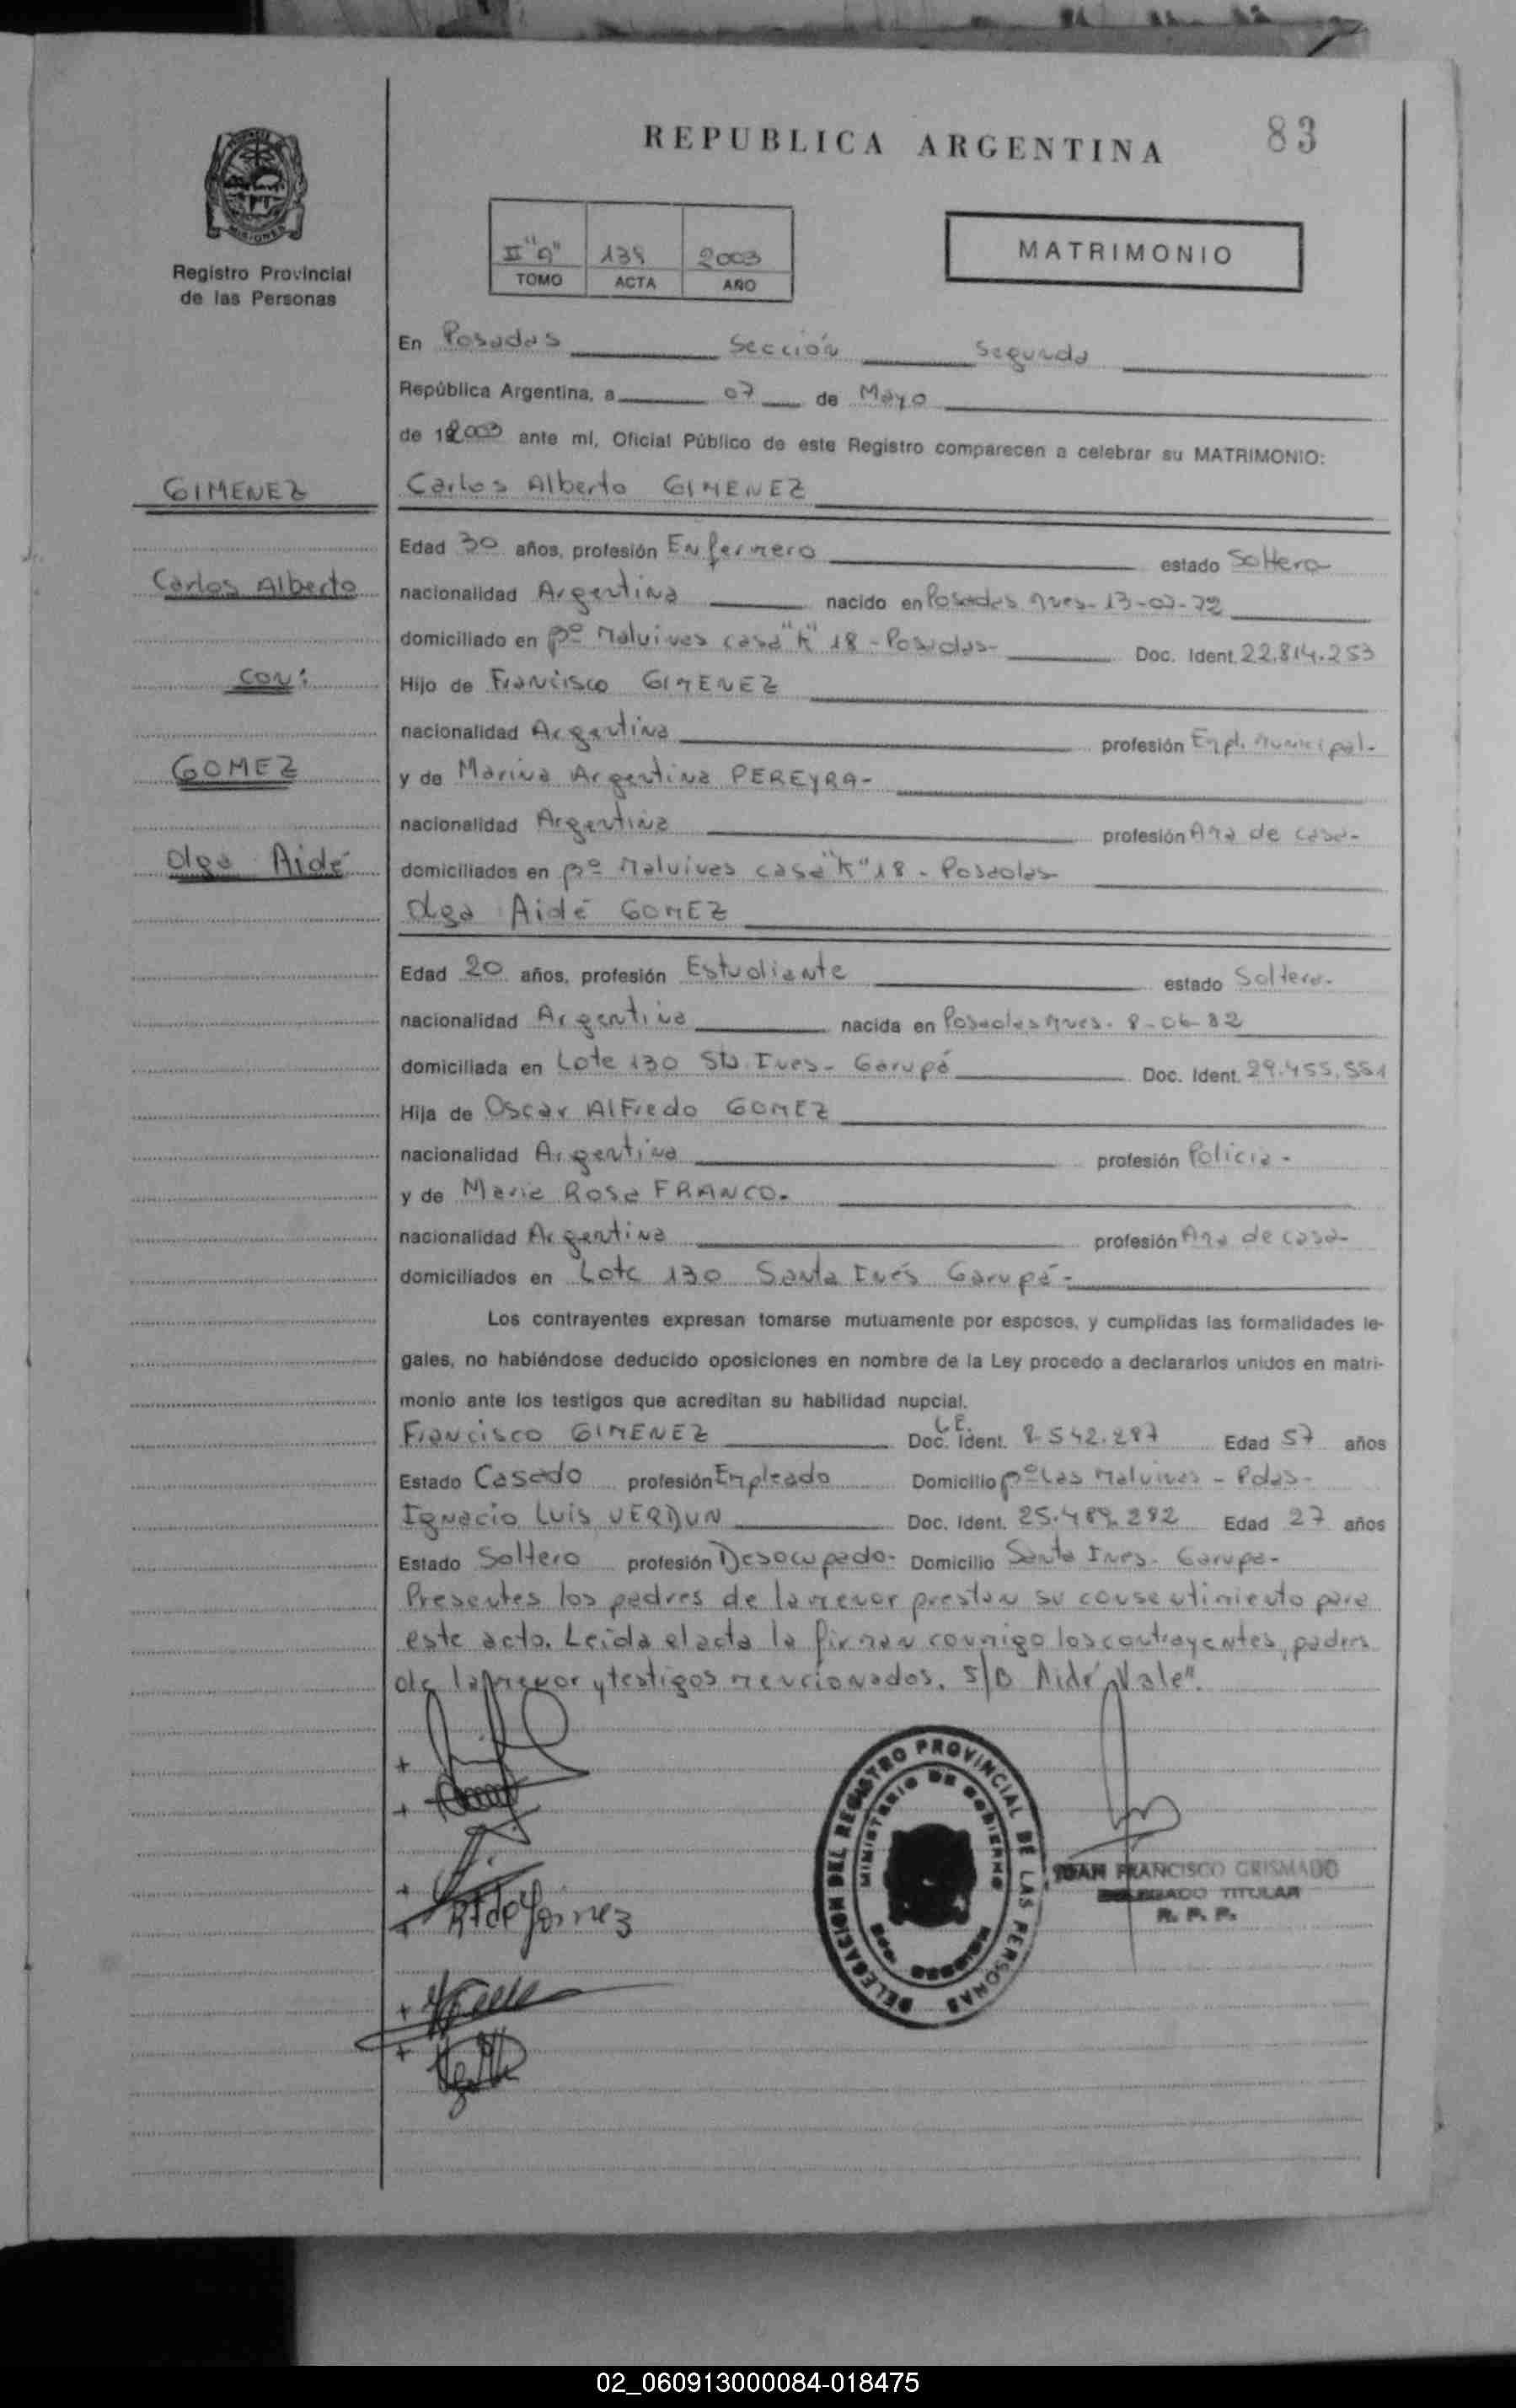 REPUBLICA ARGENTINA
83
MISIONES
Registro Provincial
de las Personas
II "a" 2003
TOMO ACTA AÑO
MATRIMONIO
En Posadas Sección Segunda
República Argentina, a 07 de Mayo
de 2003 ante mí, Oficial Público de este Registro comparecen a celebrar su MATRIMONIO:
GIMENEZ
Carlos Alberto GIMENEZ
Edad 30 años, profesión Enfermero estado Soltero
Carlos Alberto
nacionalidad Argentina nacido en Posadas Mnes- 72
domiciliado en Bº Malvinas casa "K" 18 - Posadas- Doc. Ident. 22.814.253
con:
Hijo de Francisco GIMENEZ
nacionalidad Argentina profesión Empl. Municipal.
GOMEZ
y de Marina Argentina PEREYRA-
nacionalidad Argentina profesión Ama de casa-
Olga Aidé
domiciliados en Bº Malvinas casa "K" 18 - Posadas
Olga Aidé GOMEZ
Edad 20 años, profesión Estudiante estado Soltera-
nacionalidad Argentina nacida en Posadas Mnes. 8-06-82
domiciliada en Lote 130 Sta. Ines- Garupá Doc. Ident. 29.455.551
Hija de Oscar Alfredo GOMEZ
nacionalidad Argentina profesión Policia-
y de Maria Rosa FRANCO.
nacionalidad Argentina profesión Ama de casa-
domiciliados en Lote 130 Santa Inés Garupá-
Los contrayentes expresan tomarse mutuamente por esposos, y cumplidas las formalidades le-
gales, no habiéndose deducido oposiciones en nombre de la Ley procedo a declararlos unidos en matri-
monio ante los testigos que acreditan su habilidad nupcial.
Francisco GIMENEZ Doc. Ident. L.E. 8.542.287 Edad 57 años
Estado Casado profesión Empleado Domicilio Bº Las Malvinas - Pdas-
Ignacio Luis VERDUN Doc. Ident. 25.489.292 Edad 27 años
Estado Soltero profesión Desocupado- Domicilio Santa Ines- Garupa-
Presentes los padres de la menor prestan su consentimiento para
este acto. Leida el acta la firman conmigo los contrayentes, padres
de la menor y testigos mencionados. S/B Aidé "Vale".
Gomez
DELEGACION DEL REGISTRO PROVINCIAL DE LAS PERSONAS
MINISTERIO DE GOBIERNO
JUAN FRANCISCO GRISMADO
DELEGADO TITULAR
R. P. P.
02_060913000084-018475